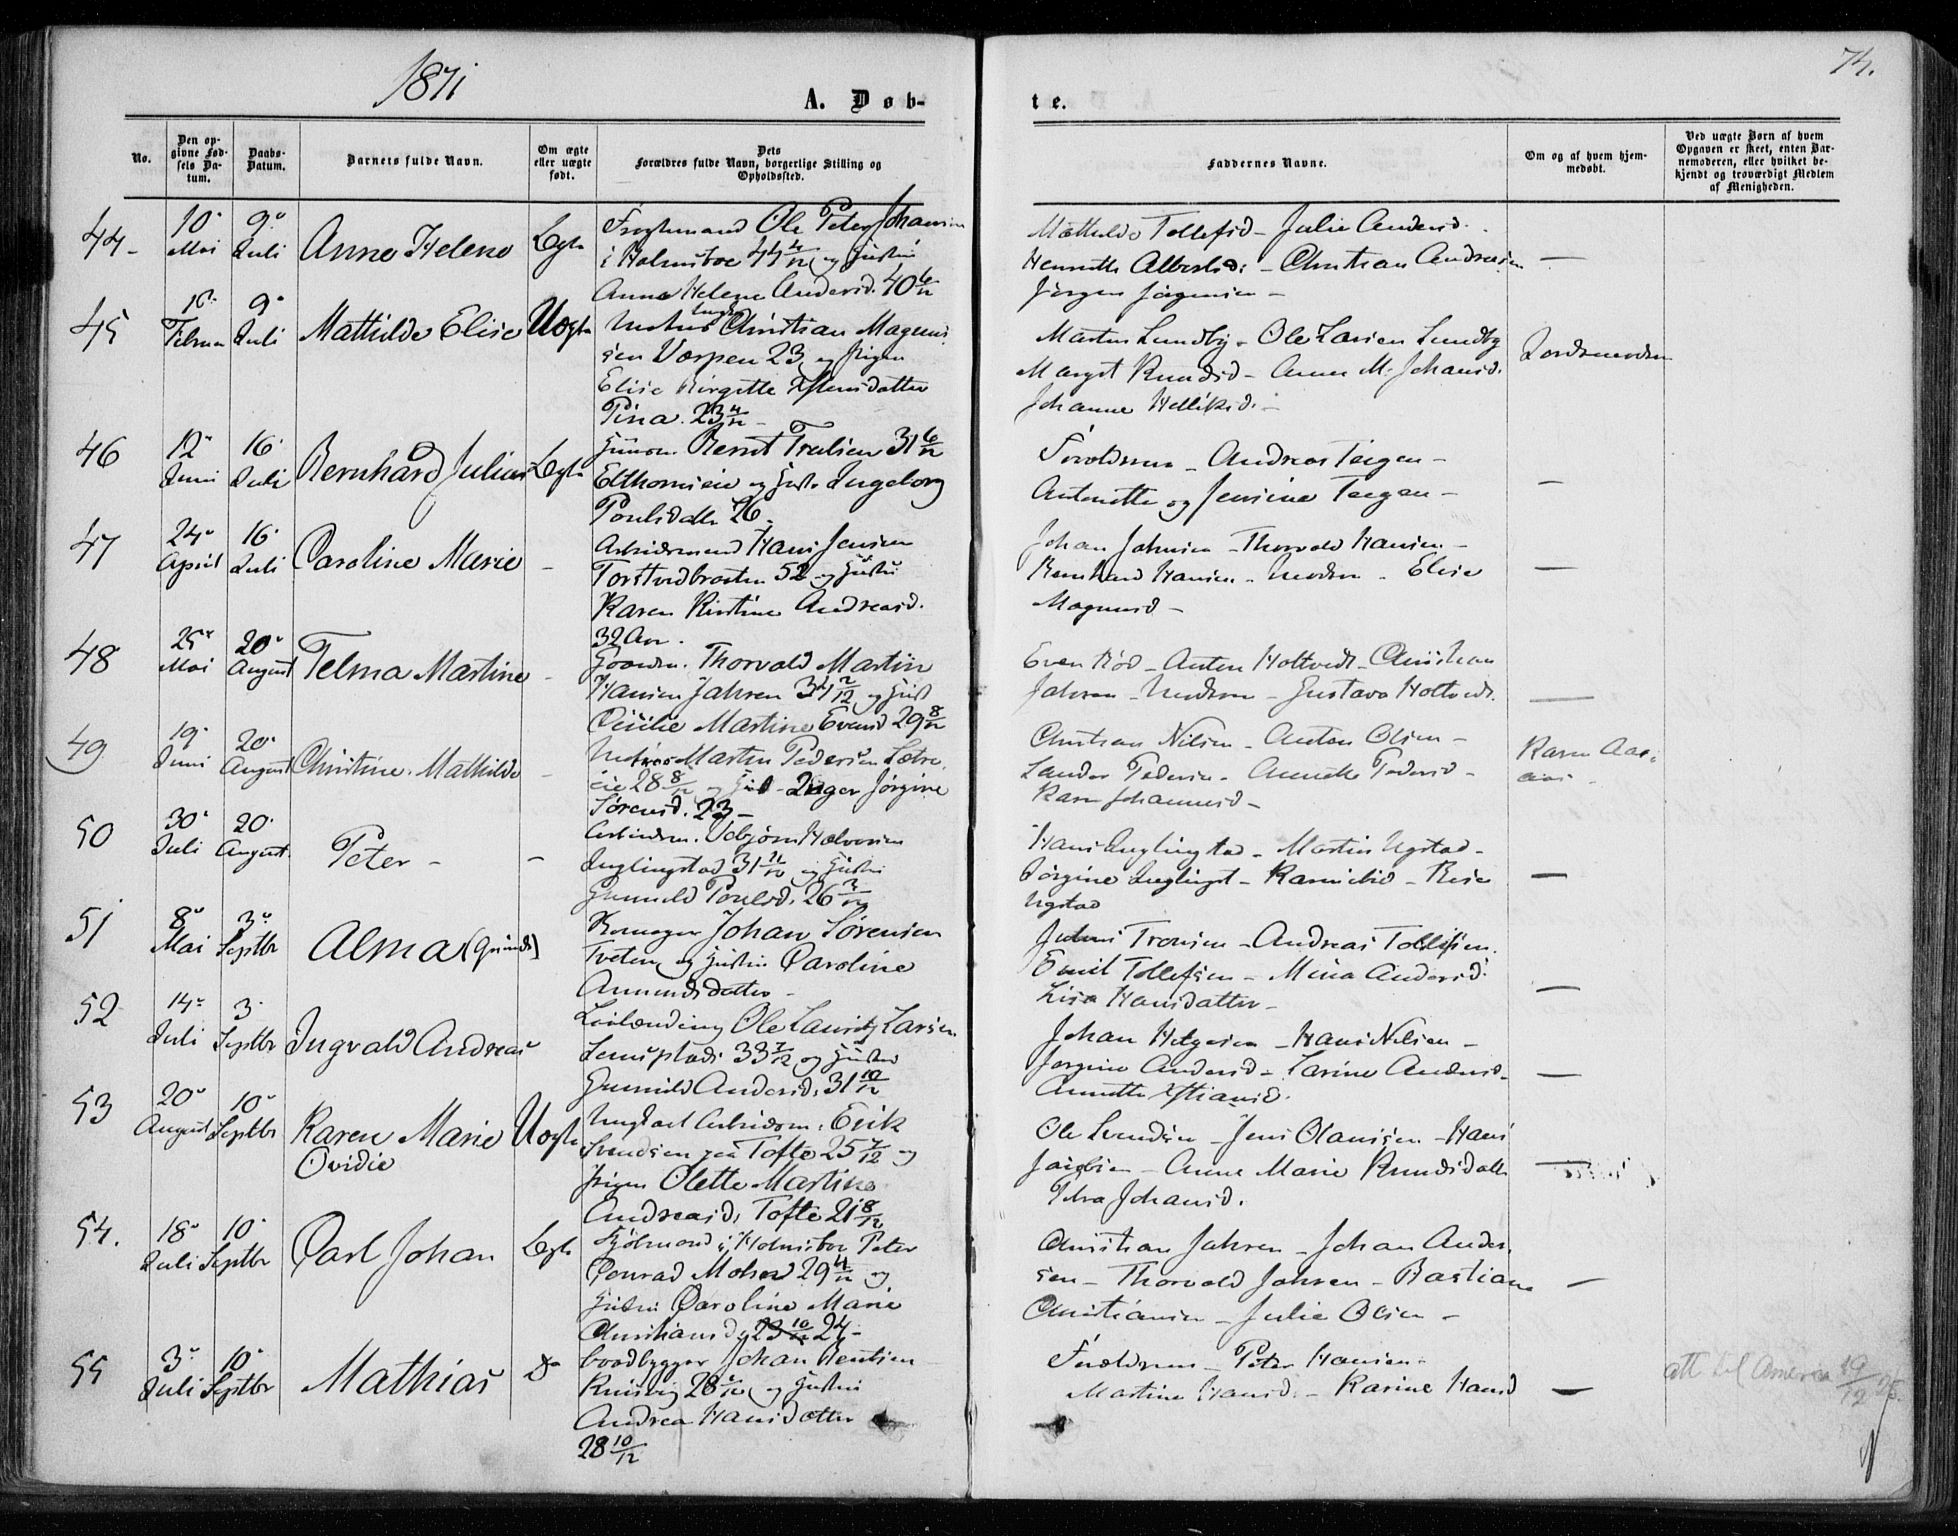 1871
74.
A. Døb-
te.
No.
Den op-
givne Fød-
sels Da-
tum.
Daabs-
Datum.
Barnets fulde Navn.
Om ægte
eller uægte
født.
Dets
Forældres fulde Navn, borgerlige Stilling og
Opholdssted.
Faddernes Navne.
Om og af hvem hjem-
medøbt.
Ved uægte Børn af hvem
Opgaven er skeet, enten Bar-
nemoderen, eller hvilket be-
kjendt og troværdigt Medlem
af Menigheden.
44-
10
Mai
9
Juli
Anne Helene
Ægte
Ole Peter Johansen
i Holmsboe 44 4/12 og Hustru
Anne Helene Andersd. 40 6/12
Mathilde Tollefsd - Julie Andersd.
Henriette Albertsd: - Christian Andreasen
Jörgen Jörgensen -
—
45
9
Juli
Mathilde Elise
Uægte
Christian Magnus
sen Værpen 23 og Pigen
Elise Birgitte
23 4/12 -
Martin Lundby - Ole Larsen Lundby
Margit Knudsd - Anne M. Johansd.
Johanne -
Jordmoderen
46
12
Juni
16
Juli
Bernhard Julius
Ægte
Bernt Trulsen 31 6/12
og Hust. Ingeborg
Poulsdatter 26
Forældrene - Andreas Teigen -
Antonette og Jensine Teigen -
—
47
24
April
16
Juli
Caroline Marie
-
Arbeidsmand Hans Jensen
52 og Hustru
Karen Kirstine Andreasd.
32 Aar.
Johan Johnsen - Thorvald Hansen -
Bernhard Hansen - Moderen - Elise
Magnusd -
—
48
25
Mai
20
August
Telma Martine
-
Thorvald Martin
Hansen Jahren 34 2/12 og Hust
Cicilie Martine Evensd 29 8/12
Even Röd - Anton Holtvedt - Christian
Jahren - Moderen - Gustava Holtvedt.
—
49
19
Juni
20
August
Christine Mathilde
-
Martin Pedersen Sætre
eie 28 8/12 og Hust - Inger Jörgine
Sörensd. 23 -
Christian Nilsen - Anton Olsen -
Lander Pedersen - Annette Pedersd -
Karen Johannesd -
Karen Aas
50
30
Juli
20
August
Peter -
-
Halvorsen
Inglingstad 31 11/12 og Hustru
Gunnild Poulsd. 26 3/12
Hans Inglingstad - Martin Ugstad -
Jörgine Inglingst -
Ugstad
—
51
8
Mai
3
Septbr
Alma
Johan Sörensen
Tveten og Hustru Caroline
Amundsdatter -
Tronsen - Andreas Tollefsen.
Emil Tollefsen - Mina Andersd.
Lisa Hansdatter -
—
52
14
Juli
3
Septbr
Ingvald Andreas
Ole Lauritz Larsen
33 7/12 og Hustru
Gunnild Andersd. 31 10/12
Johan Helgesen - Hans Nilsen -
Jörgine Andersd - Larine Andersd -
Annette
—
53
20
August
10
Septbr
Karen Marie
Ovidie
Uægte
Ungkarl Arbeidsm. Erik
Svendsen paa Tofte 25 7/12 og
Pigen Olette Martine
Andreasd, Tofte 21 8/12
Ole Svendsen - Jens Olaussen - Hans
Jacobsen - Anne Marie Knudsdatt.
Johansd.
—
54.
18
Juli
10
Septbr
Carl Johan
Ægte
Sjömand i Holmsbo Peter
Conrad Mohn 29 4/12 og
Hustru Caroline Marie
Christiansd, 23 10/12 24 -
Christian Jahren - Johan Ander-
sen - Thorvald Jahren - Bastian
Christiansen - Julie Olsen -
—
55
3
Juli
10
Septbr
Mathias
Do
Baadbygger Johan Bentsen
Knivsvig 28 og Hustru
Andrea Hansdatter
28 10/12
Forældrene - Peter Hansen -
Martine Hansd. - Karine Hansd
—
att til America 19/12